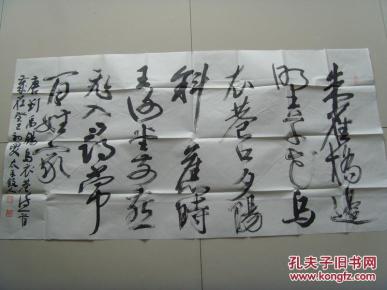 朱雀橋邊
野草花烏
衣巷口夕陽
斜舊時
王謝堂前燕
飛入尋常
百姓家
唐劉禹錫烏衣巷詩一首
孔夫子旧书网